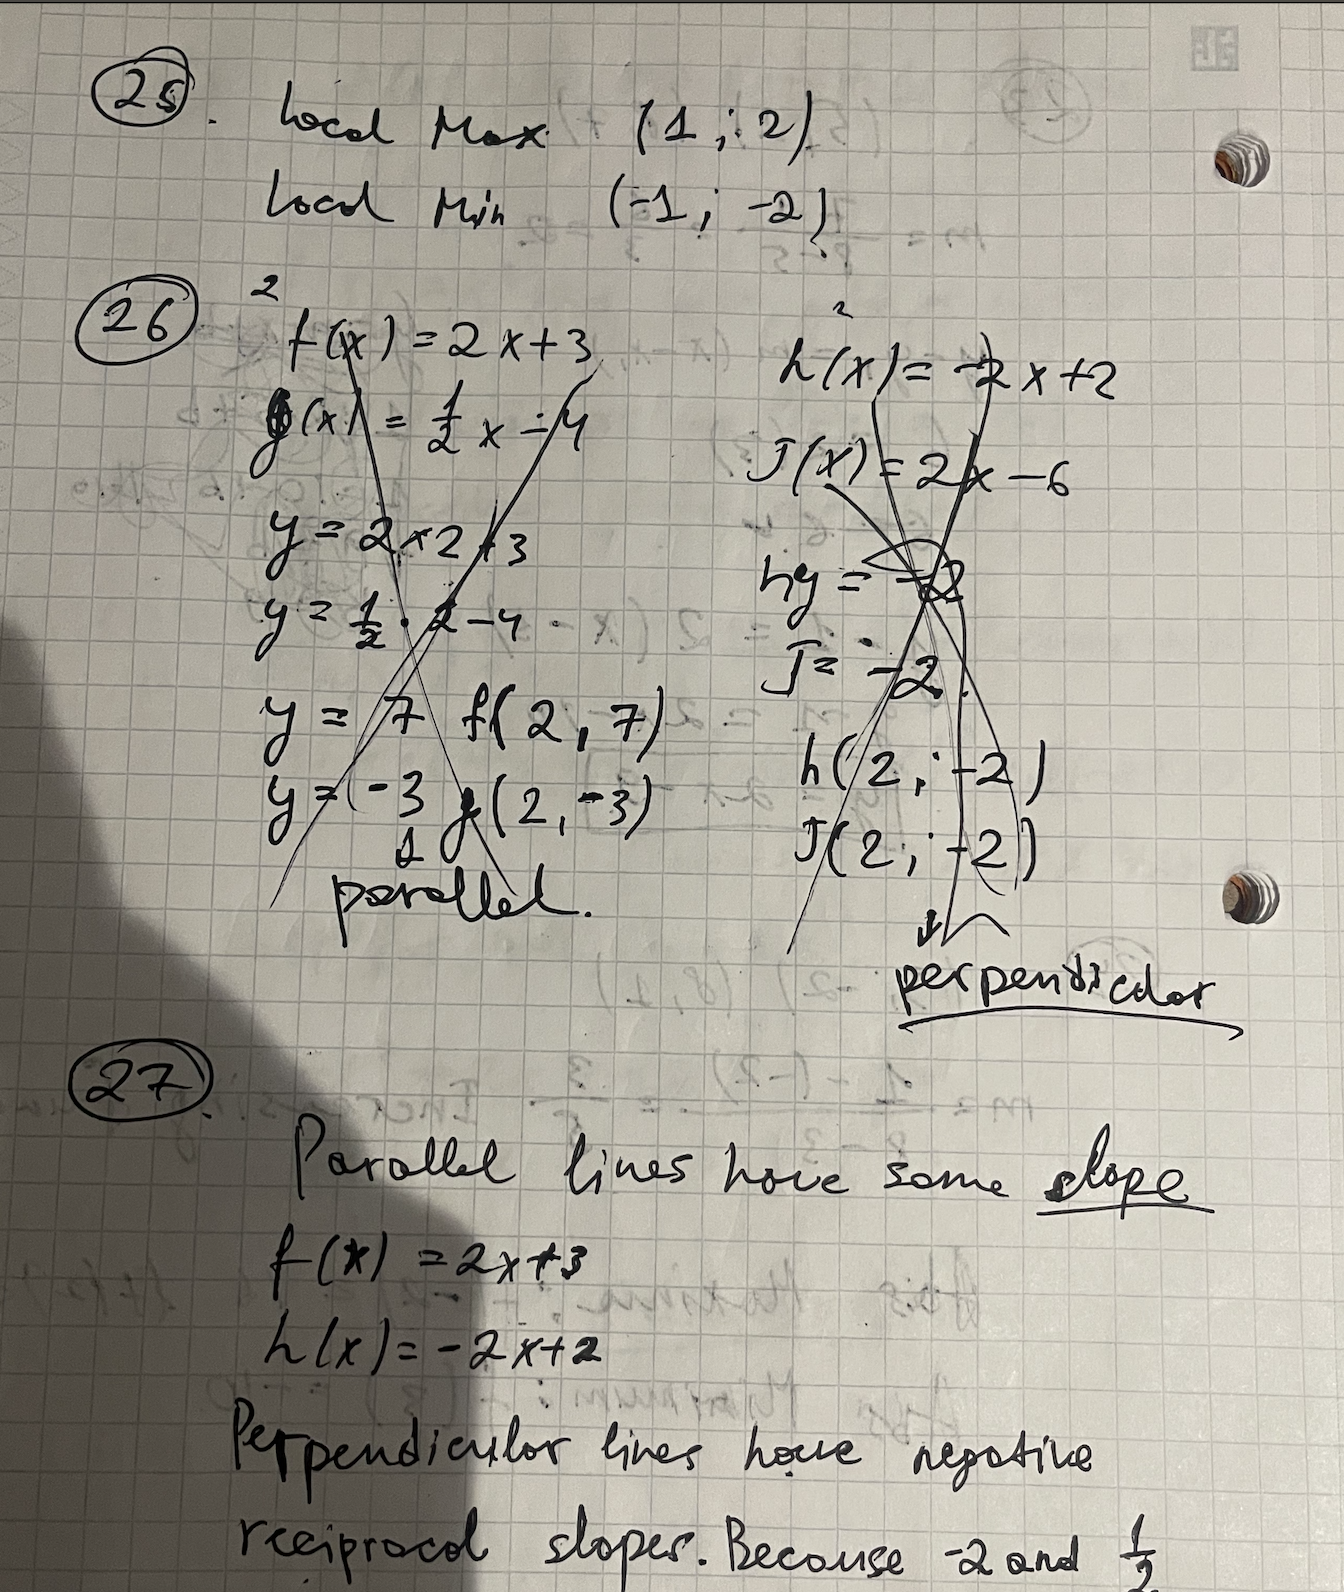 25. Local Max (1 ; 2)
Local Min (-1 ; -2)
26
2
f(x) = 2x+3
g(x) = 1/2 x - 4
y = 2×2+3
y = 1/2 · 2-4
y = 7 f(2, 7)
y = -3 g(2, -3)
parallel.
2
h(x) = -2x+2
J(x) = 2x-6
hy = -2
J = -2
h(2 ; -2)
J(2 ; -2)
perpendicular
27.
Parallel lines have same slope
f(x) = 2x+3
h(x) = -2x+2
Perpendicular lines have negative
reciprocal slopes. Because -2 and 1/2